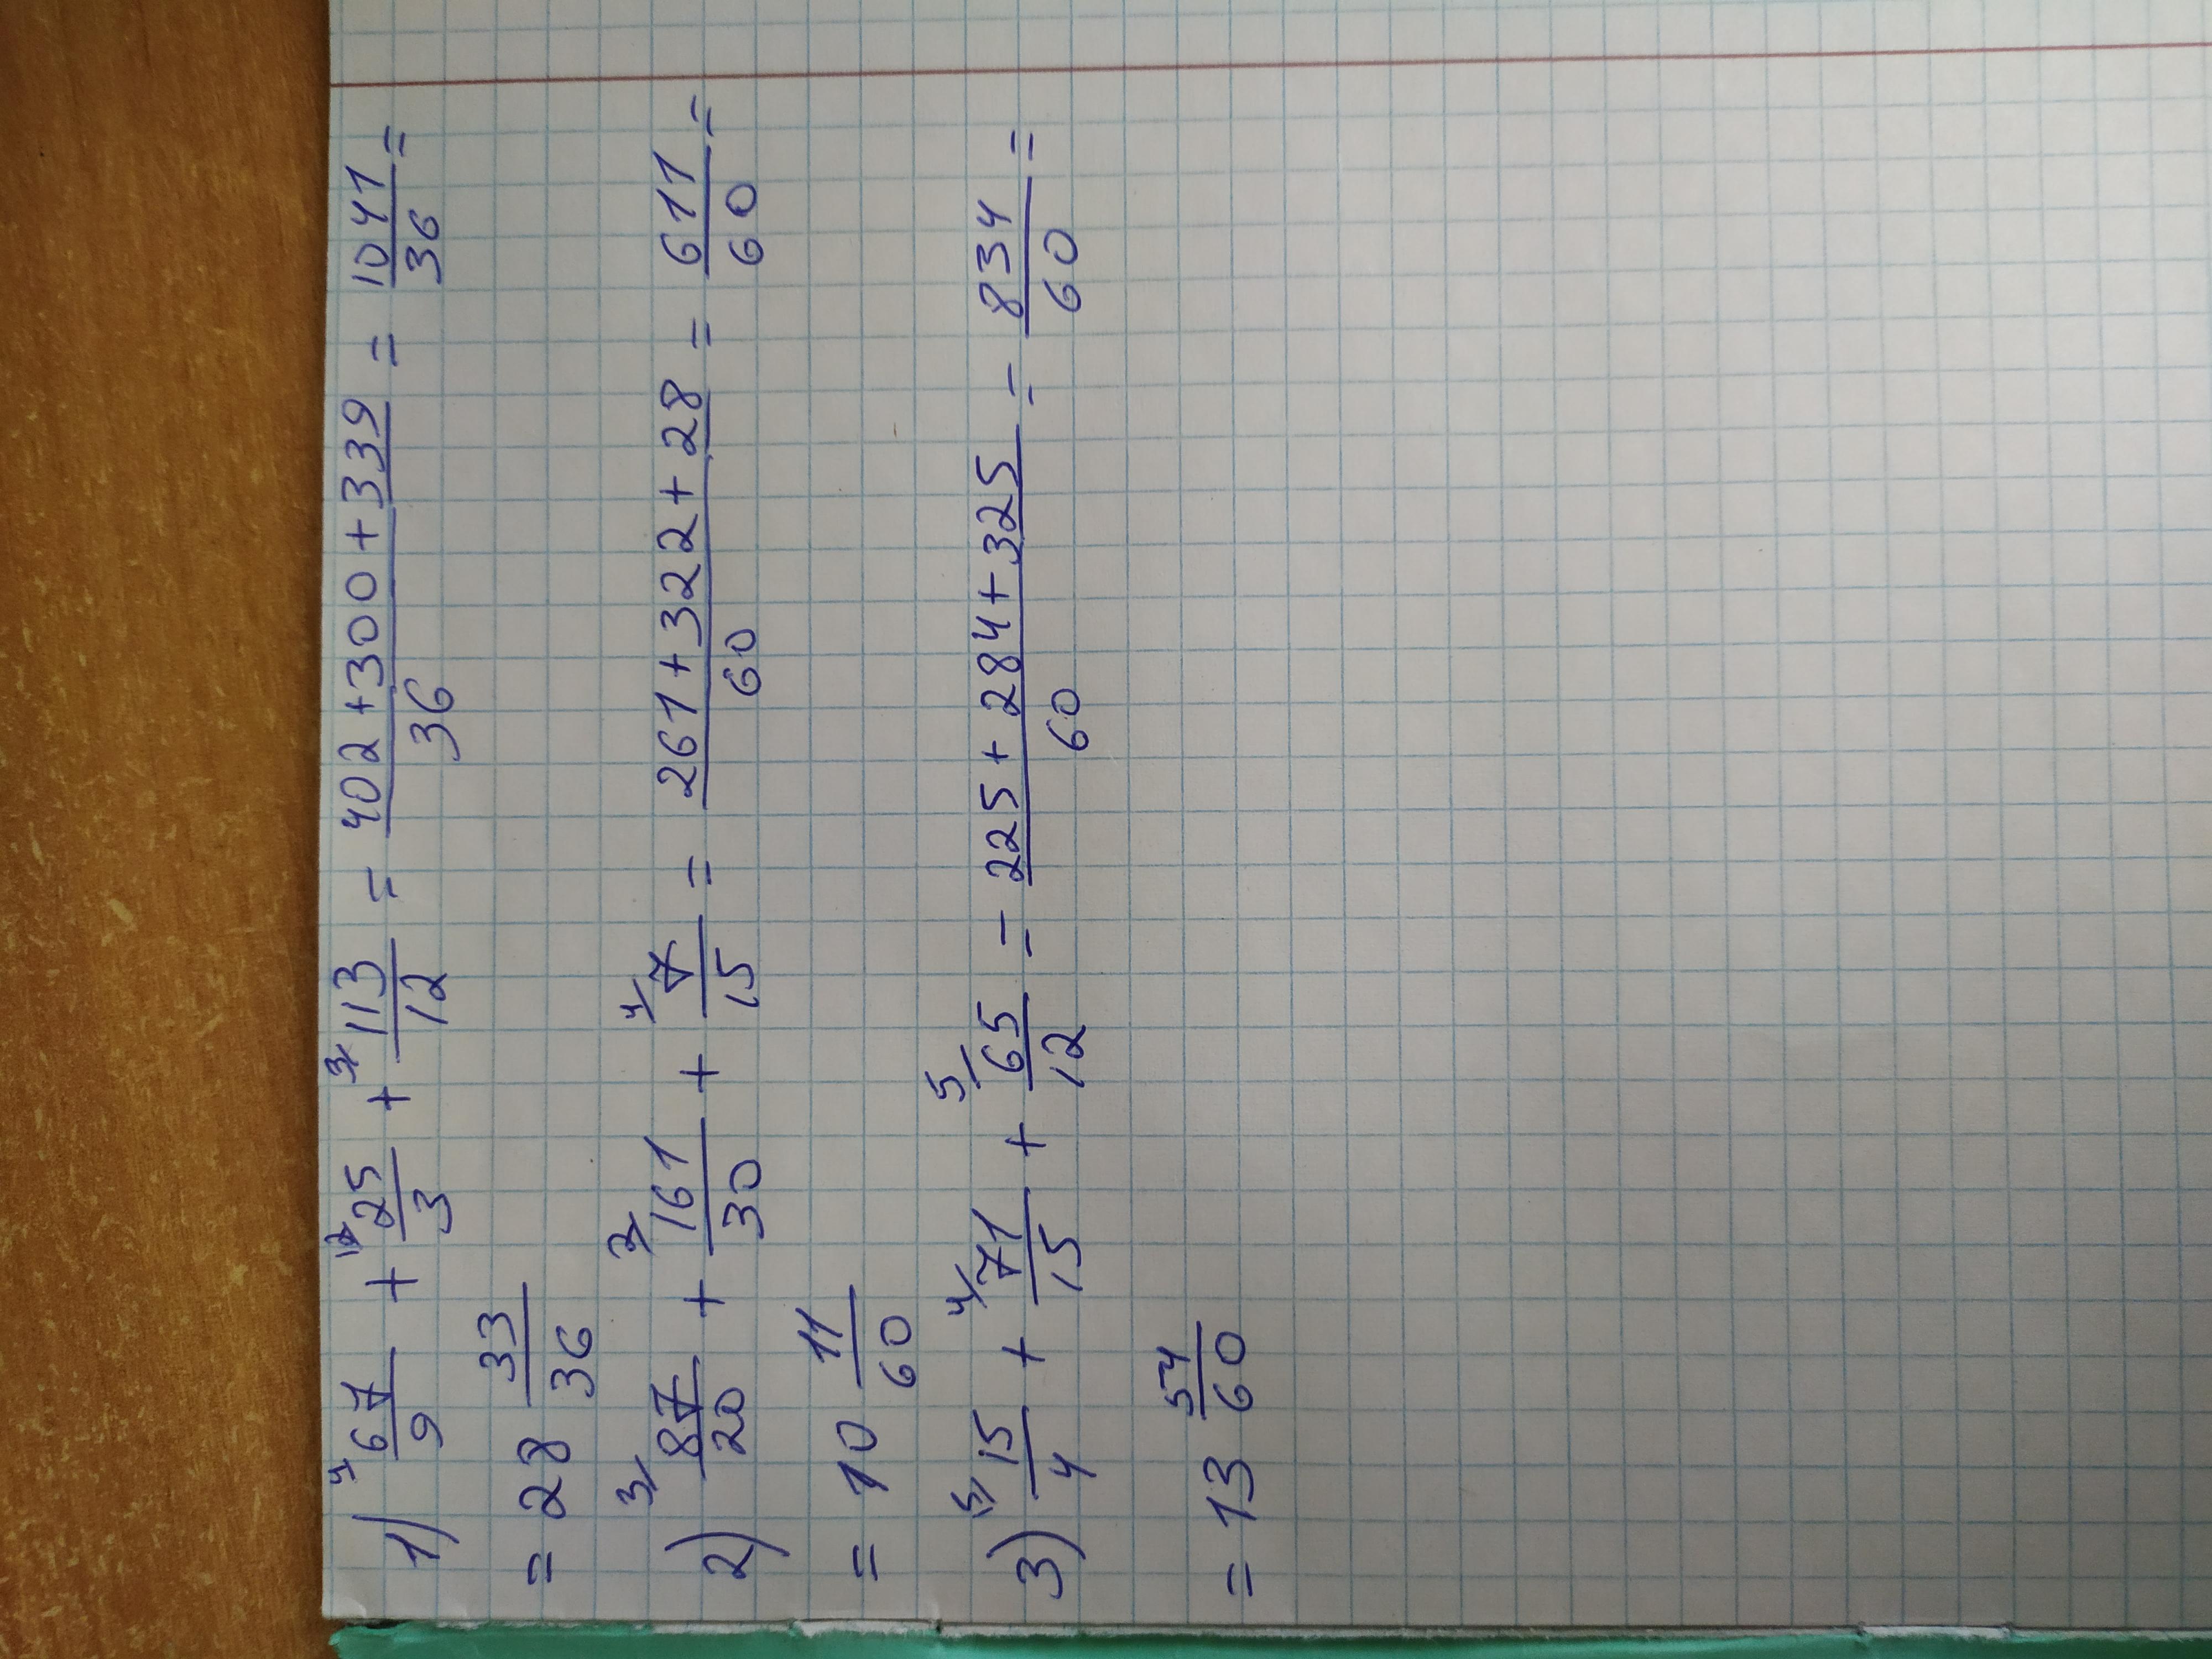 1) 4/ 67/9 + 12/ 25/3 + 3/ 113/12 = (402+300+339)/36 = 1041/36 =
= 28 33/36
2) 3/ 87/20 + 2/ 161/30 + 4/ 7/15 = (261+322+28)/60 = 611/60 =
= 10 11/60
3) 15/ 15/4 + 4/ 71/15 + 5/ 65/12 = (225+284+325)/60 = 834/60 =
= 13 54/60